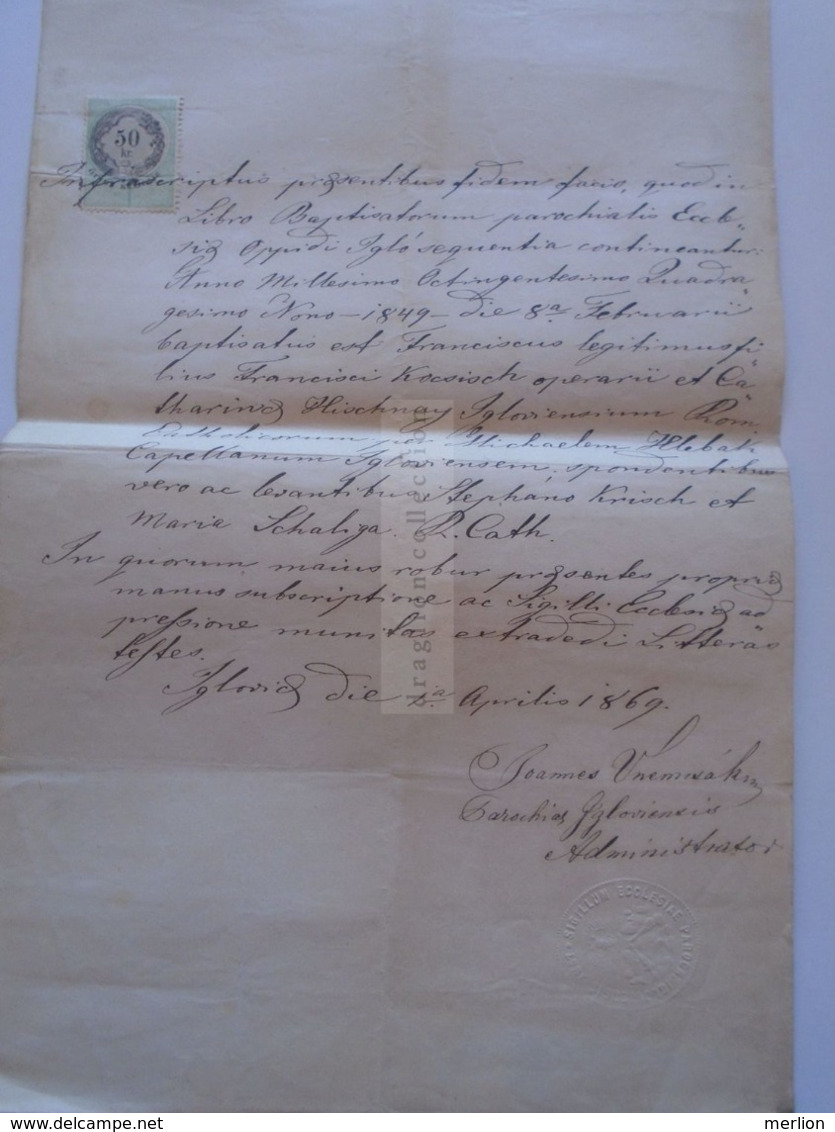 50
kr.
Infrascriptus præsentibus fidem facio, quod in
Libro Baptisatorum parochialis Eccle„
siæ Oppidi Igló sequentia contineantur:
Anno Millesimo Octingentesimo Quadra
gesimo Nono – 1849 – die 8ª Februarii
baptisatus est Franciscus legitimus fi„
lius Francisci Kocsisch operarii et Ca„
tharinæ Hischnay Igloviensium Rom.
Catholicorum per Michaelem Hlebah
Capellanum Igloviensem, spondentibus
vero ac levantibus Stephano Krisch et
Maria Schaliga. R. Cath.
In quorum maius robur præsentes propriæ
manus subscriptione ac Sigilli Ecclesiæ ad
pressione munitas extradedi Litteras
testes.
Igloviæ die Aprilis 1869.
Joannes
Parochiæ Igloviensis
Administrator
SIGILLUM ECCLESIAE
dragffon collection
delcampe.net
merlion